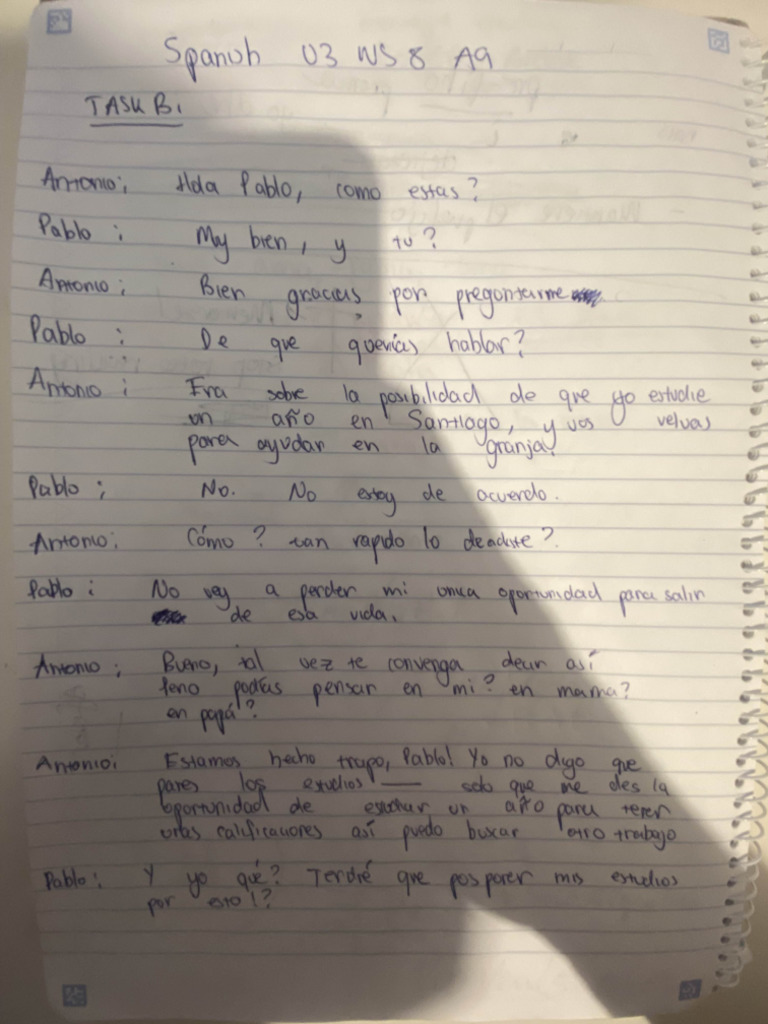 Spanish U3 WS 8 A9
TASK B.
Antonio: Hola Pablo, como estas?
Pablo: My bien, y tu?
Antonio: Bien gracias, por pregontarme
Pablo: De que querías hablar?
Antonio: Era sobre la posibilidad de que yo estudie
un año en Santiago, y vos velvas
para ayudar en la granja?
Pablo: No. No estoy de acuerdo.
Antonio: Cómo? tan rapido lo decidiste?
Pablo: No voy a perder mi unica oportunidad para salir
de esa vida.
Antonio: Bueno, tal vez te convenga decir así
Pero podías pensar en mi? en mama?
en papá?
Antonio: Estamos hecho trapo, Pablo! Yo no digo que
pares los estudios — solo que me des la
oportunidad de estudiar un año para tener
unas calificaciones así puedo buscar otro trabajo
Pablo: Y yo qué? Tendré que posponer mis estudios
por esto!?